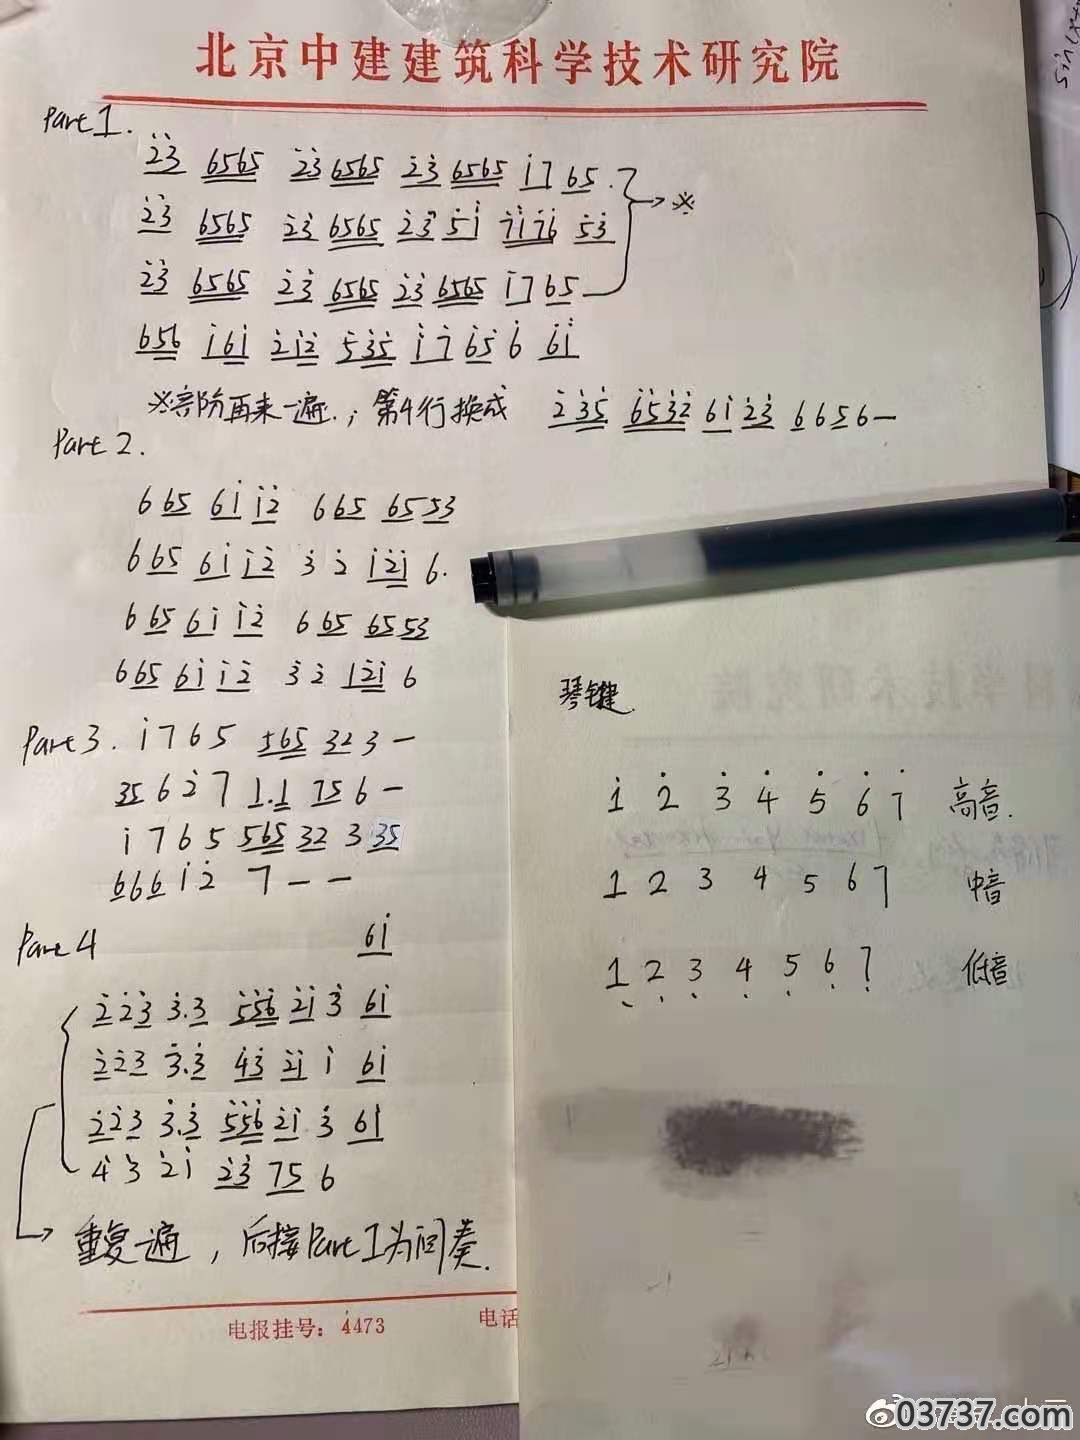 北京中建建筑科学技术研究院
Part 1.
2̇3̇ 6565 2̇3̇ 6565 2̇3̇ 6565 1̇7 65.
2̇3̇ 6565 2̇3̇ 6565 2̇3̇ 5̇1̇ 7̇1̇7̇6̇ 5̇3̇ → ※
2̇3̇ 6565 2̇3̇ 6565 2̇3̇ 6565 1̇7 65
656 1̇61̇ 2̇1̇2̇ 5̇3̇5̇ 1̇7 65 6 61̇
※部防再来一遍.; 第4行换成 2̇3̇5̇ 6̇5̇3̇2̇ 61̇ 2̇3̇ 6656—
Part 2.
6 65 61̇ 1̇2̇ 6 65 65 53
6 65 61̇ 1̇2̇ 3̇ 2̇ 1̇2̇1̇ 6.
6 65 61̇ 1̇2̇ 6 65 65 53
6 65 61̇ 1̇2̇ 3̇ 2̇ 1̇2̇1̇ 6
Part 3. 1̇ 7 6 5 565 32 3 —
35 6 2̇ 7 1.1 75 6 —
1̇ 7 6 5 565 32 3 35
6 6 6 1̇ 2̇ 7 — —
Part 4 61̇
2̇ 2̇3̇ 3̇.3̇ 5̇5̇6̇ 2̇1̇ 3̇ 61̇
2̇2̇3̇ 3̇.3̇ 4̇3̇ 2̇1̇ 1̇ 61̇
2̇2̇3̇ 3̇.3̇ 5̇5̇6̇ 2̇1̇. 3̇ 61̇
4̇ 3̇ 2̇1̇ 2̇3̇ 75 6
重复一遍，后接Part 1为间奏.
电报挂号：4473
电话
琴键
1̇ 2̇ 3̇ 4̇ 5̇ 6̇ 7̇ 高音.
1 2 3 4 5 6 7 中音
1̣ 2̣ 3̣ 4̣ 5̣ 6̣ 7̣ 低音
03737.com